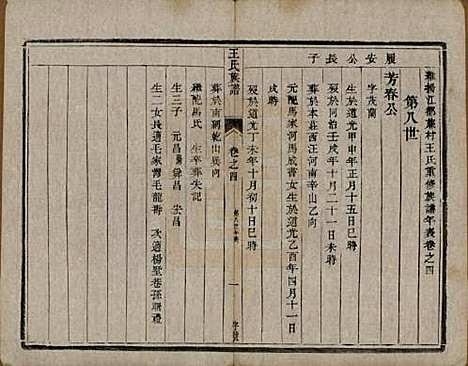 維揚江都蕭村王氏重修族譜年表卷之四
第八世
履安公長子
芳春公
字茂蘭
生於道光甲申年正月十五日巳時
歿於同治壬戌年十月二十一日未時
葬於本莊西汪河南辛山乙向
元配馬家河馬成書女生於道光乙酉年四月十一日
戌時
王氏族譜
卷之四
一
歿於道光丁未年十月初十日巳時
葬於南荊乾山巽向
繼配馬氏 生卒葬失記
生三子 元昌 舜昌 宏昌
生二女長適毛家灣毛龍壽 次適楊墅巷孫朋禮